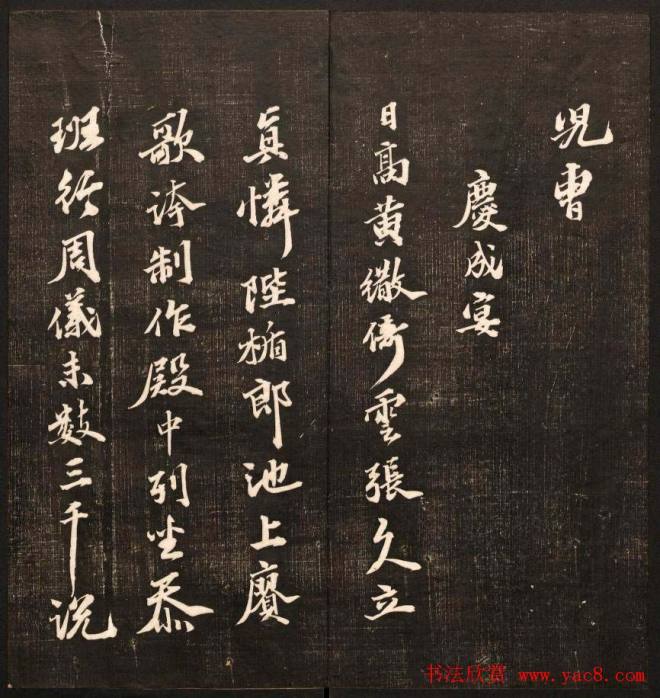 兒曹
慶成宴
日高黄繖倚雲張久立
真憐陛楯郎池上賡
歌誇制作殿中列坐忝
班行周儀未數三千說
书法欣赏 www.yac8.com